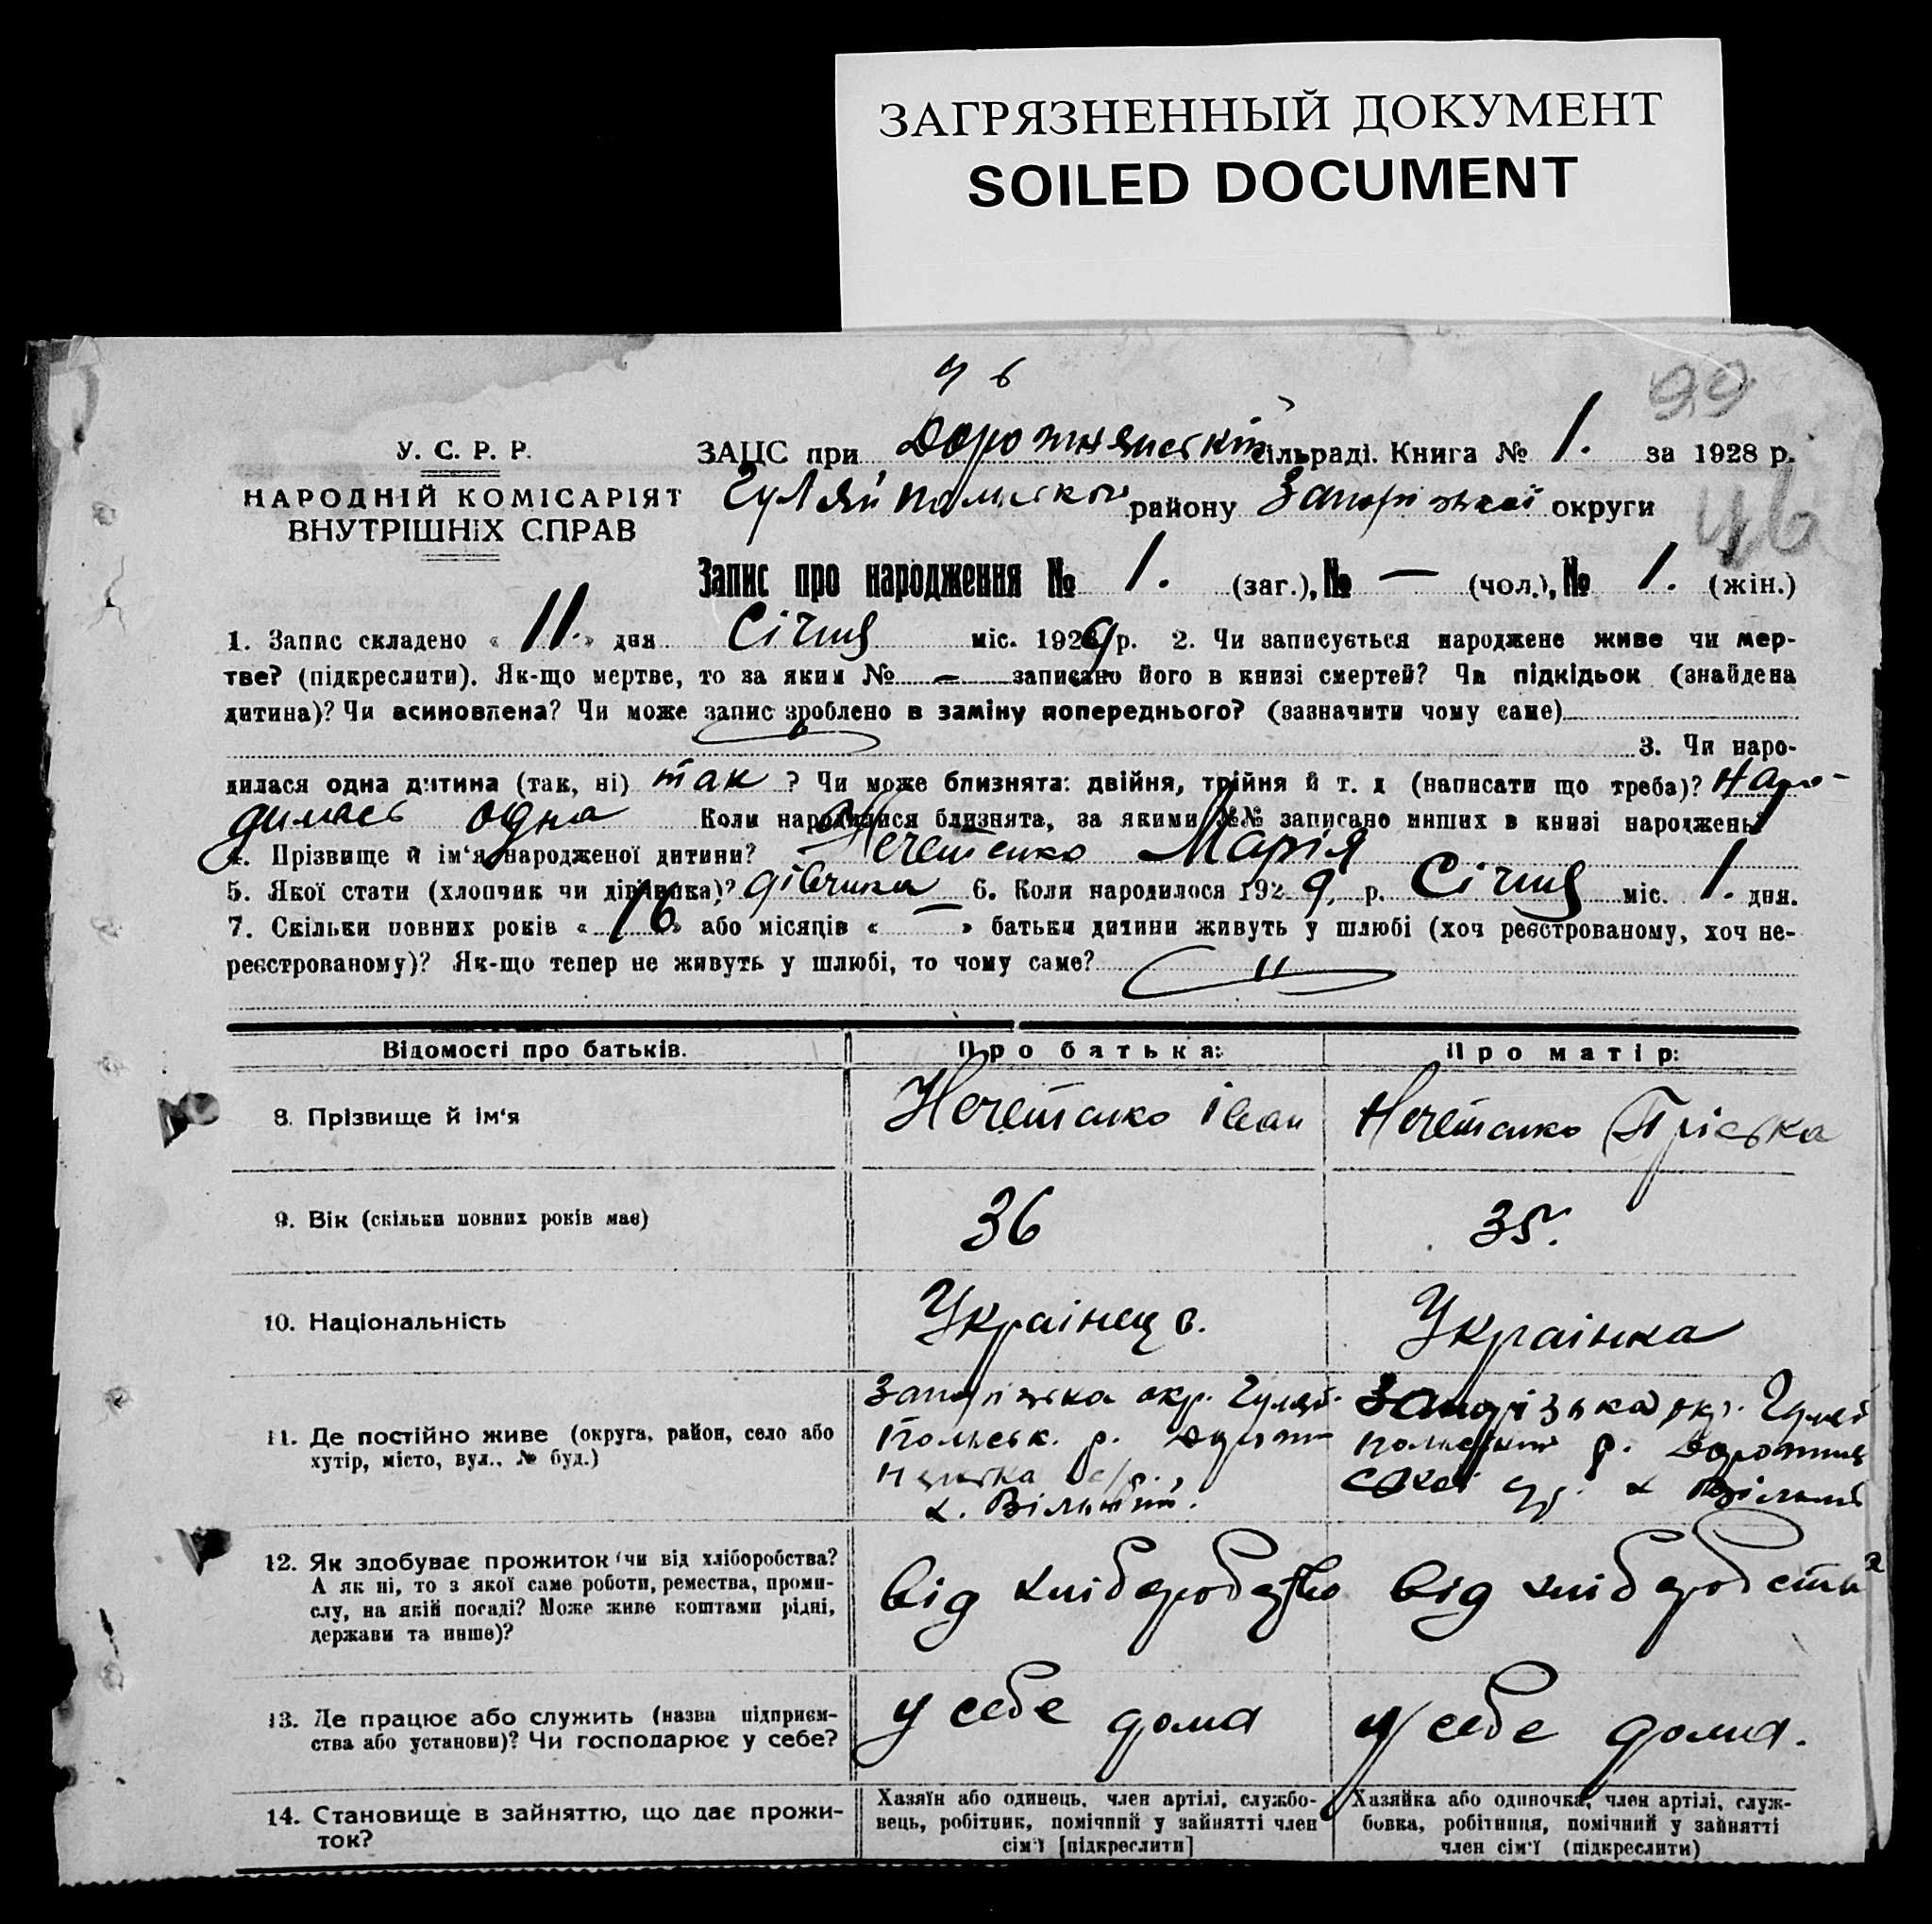 ЗАГРЯЗНЕННЫЙ ДОКУМЕНТ
SOILED DOCUMENT
99
У. С. Р. Р.
НАРОДНІЙ КОМІСАРІЯТ
ВНУТРІШНІХ СПРАВ
46
ЗАЦС при Дорожнянській сільраді. Книга № 1. за 1928 р.
Гуляйпольсько району Запорізької округи
Запис про народження № 1. (заг.), № — (чол.), № 1. (жін.)
1. Запис складено « 11. » дня Січня міс. 1929 р. 2. Чи записується народжене живе чи мер-
тве? (підкреслити). Як-що мертве, то за яким № — записано його в книзі смертей? Чи підкідьок (знайдена
дитина)? Чи асиновлена? Чи може запис зроблено в заміну попереднього? (зазначити чому саме)
3. Чи наро-
дилася одна дитина (так, ні) так ? Чи може близнята: двійня, трійня й т. д (написати що треба)? Наро-
дилась одна Коли народилися близнята, за якими №№ записано инших в книзі народжень?
4. Прізвище й ім‘я народженої дитини? Нечетенко Марія
5. Якої стати (хлопчик чи дівчинка)? дівчинка 6. Коли народилося 1929 р. Січня міс. 1. дня.
7. Скільки повних років « 16 » або місяців « — » батьки дитини живуть у шлюбі (хоч реєстрованому, хоч не-
реєстрованому)? Як-що тепер не живуть у шлюбі, то чому саме?
Відомості про батьків. Про батька: Про матір:
8. Прізвище й ім‘я Нечетенко Іван Нечетенко Пріська
9. Вік (скільки повних років має) 36 35.
10. Національність Українець. Українка
11. Де постійно живе (округа, район, село або
хутір, місто, вул., № буд.)
Запорізька окр. Гуляй-
польськ. р. Дорож
нянська с/р.,
х. Вільний.
Запорізька окр. Гуляй
польський р. Дорожнян
ської х Вільний
12. Як здобуває прожиток (чи від хліборобства?
А як ні, то з якої саме роботи, ремества, проми-
слу, на якій посаді? Може живе коштами рідні,
держави та инше)?
від хліборобства від хліборобства
13. Де працює або служить (назва підприєм-
ства або установи)? Чи господарює у себе?
у себе дома у себе дома.
14. Становище в зайняттю, що дає прожи-
ток?
Хазяїн або одинець, член артілі, службо-
вець, робітник, помічний у зайнятті член
сім‘ї [підкреслити]
Хазяйка або одиночка, член артілі, служ-
бовка, робітниця, помічний у зайнятті
член сім‘ї (підкреслити)